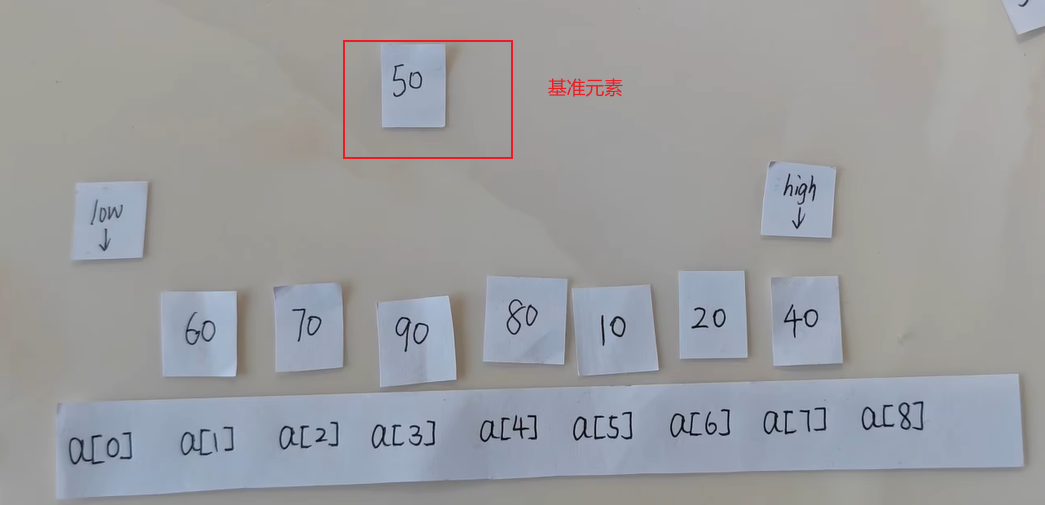 50
基准元素
low
↓
high
↓
60 70 90 80 10 20 40
a[0] a[1] a[2] a[3] a[4] a[5] a[6] a[7] a[8]